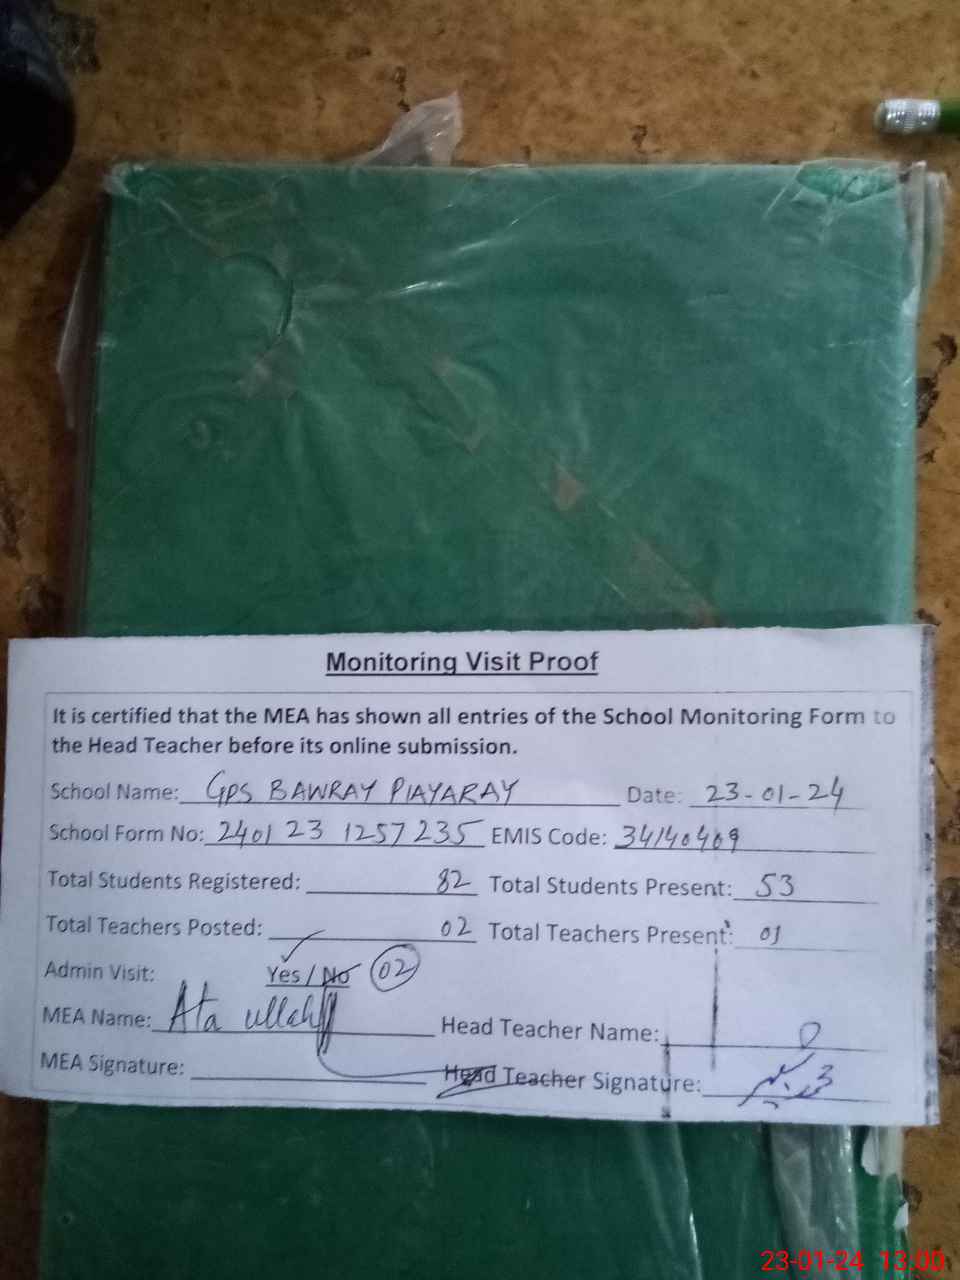 Monitoring Visit Proof
It is certified that the MEA has shown all entries of the School Monitoring Form to
the Head Teacher before its online submission.
School Name: GPS BAWRAY PIAYARAY Date: 23-01-24
School Form No: 2401 23 1257235 EMIS Code: 34140409
Total Students Registered: 82 Total Students Present: 53
Total Teachers Posted: 02 Total Teachers Present: 01
Admin Visit: Yes / No 02
MEA Name: Ata ullah Head Teacher Name:
MEA Signature: Head Teacher Signature:
23-01-24 13:00